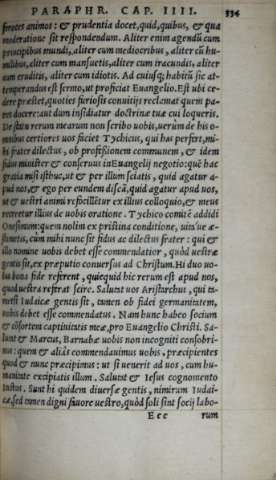 PARAPHR. CAP. IIII. 334
feroces animos: & prudentia docet, quid, quibus, & qua
moderatione sit respondendum. Aliter enim agendū cum
principibus mundi, aliter cum mediocribus, aliter cū hu-
milibus, aliter cum mansuetis, aliter cum iracundis, aliter
cum eruditis, aliter cum idiotis. Ad cuiusq; habitū sic at-
temperandus est sermo, ut proficiat Euangelio. Est ubi ce-
dere præstet, quoties furiosis conuitijs reclamat quem pa-
res docere: aut dum insidiatur doctrinæ tuæ cui loqueris.
De statu rerum mearum non scribo uobis, uerùm de his o-
mnibus certiores uos faciet Tychicus, qui has perfert, mi-
hi frater dilectus, ob professionem communem, & idem
fidus minister & conseruus in Euangelij negotio: quē hac
gratia misi istbuc, ut & per illum sciatis, quid agatur a-
pud nos, & ego per eundem discā, quid agatur apud uos,
ut & uestri animi reficillētur ex illius colloquio, & meus
recreetur illius de uobis oratione. Tychico comitē addidi
Onesimum: quem nolim ex pristina conditione, uitæue æ-
stimetis, cùm mihi nunc sit fidus ac dilectus frater: qui &
illo nomine uobis debet esse commendatior, quòd uestræ
gentis sit, ex præputio conuersus ad Christum. Hi duo uo-
bis bona fide referent, quicquid hic rerum est apud nos,
quod uestra referat scire. Salutat uos Aristarchus, qui ta-
metsi Iudaicæ gentis sit, tamen ob fidei germanitatem,
uobis debet esse commendatus. Nam hunc habeo socium
& cōsortem captiuitatis meæ, pro Euangelio Christi. Sa-
lutat & Marcus, Barnabæ uobis non incogniti consobri-
nus: quem & aliàs commendauimus uobis, præcipientes
quod & nunc præcipimus: ut si uenerit ad uos, cum hu-
manitate excipiatis illum. Salutat & Iesus cognomento
Iustus. Sunt hi quidem diuersæ gentis, nimirum Iudai-
cæ, sed omnen digni fauore uestro, quòd soli sint socij labo-
Eee rum